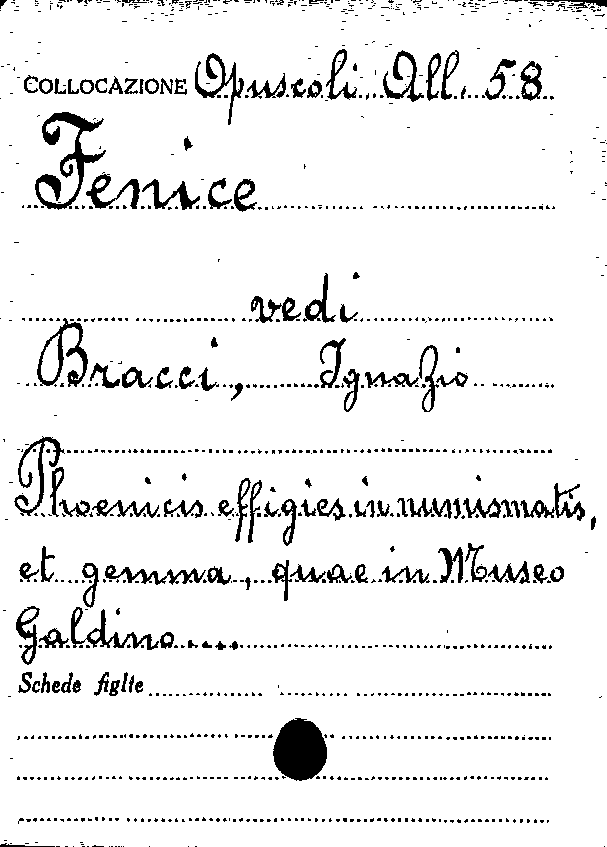 COLLOCAZIONE Opuscoli All. 58
Fenice
vedi
Bracci, Ignazio
Phoenicis effigies in numismatis,
et gemma, quae in Museo
Galdino....
Schede figlie